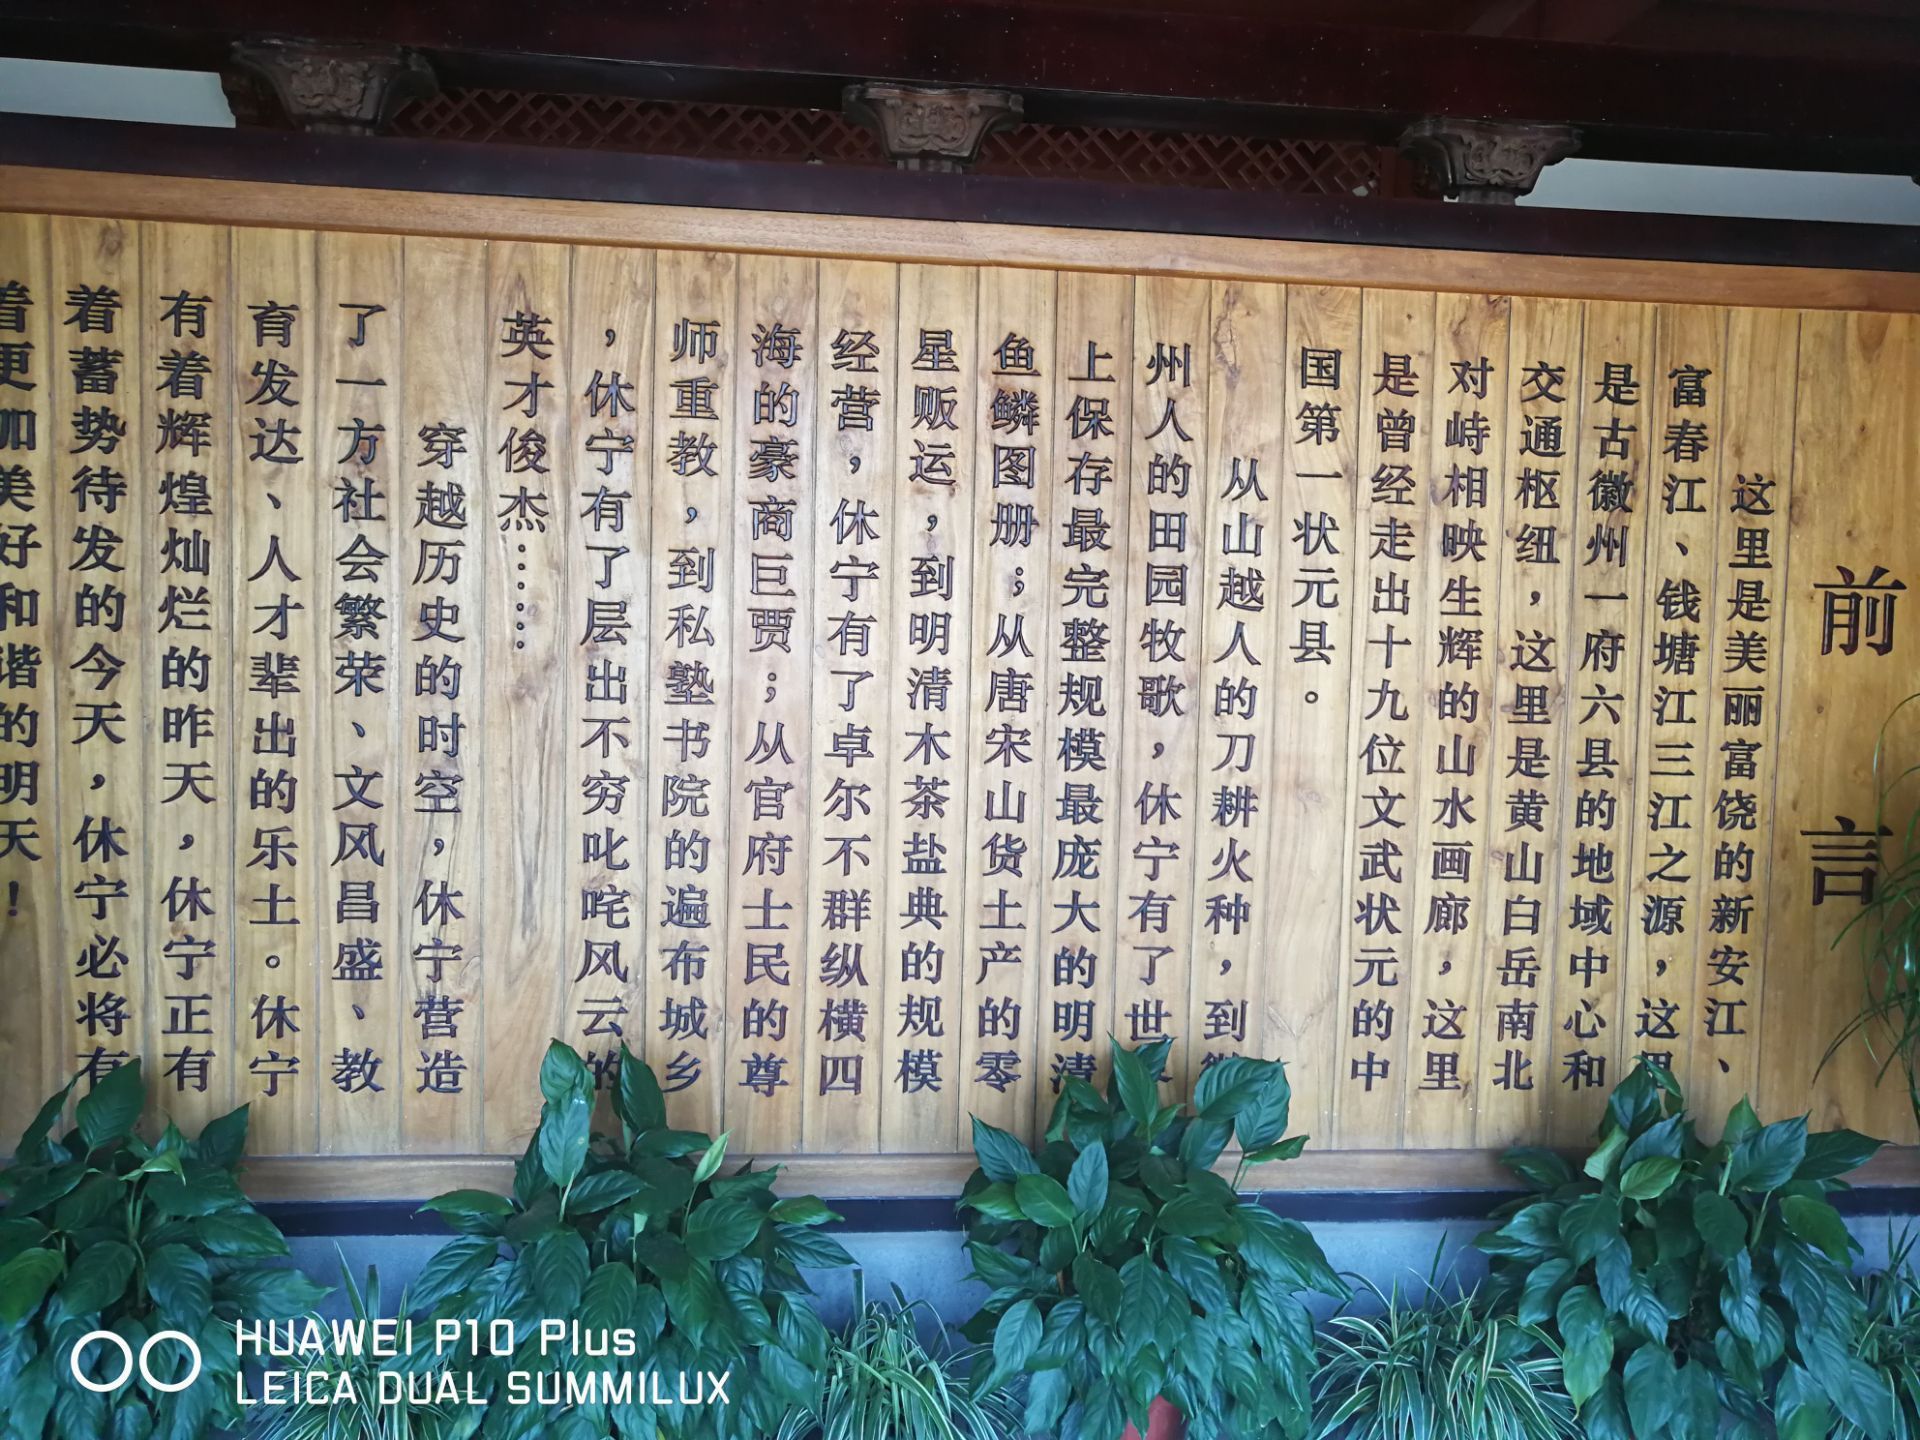 前言
这里是美丽富饶的新安江、
富春江、钱塘江三江之源，这里
是古徽州一府六县的地域中心和
交通枢纽，这里是黄山白岳南北
对峙相映生辉的山水画廊，这里
是曾经走出十九位文武状元的中
国第一状元县。
从山越人的刀耕火种，到徽
州人的田园牧歌，休宁有了世
上保存最完整规模最庞大的明清
鱼鳞图册；从唐宋山货土产的零
星贩运，到明清木茶盐典的规模
经营，休宁有了卓尔不群纵横四
海的豪商巨贾；从官府士民的尊
师重教，到私塾书院的遍布城乡
，休宁有了层出不穷叱咤风云的
英才俊杰……
穿越历史的时空，休宁营造
了一方社会繁荣、文风昌盛、教
育发达、人才辈出的乐土。休宁
有着辉煌灿烂的昨天，休宁正有
着蓄势待发的今天，休宁必将有
着更加美好和谐的明天！
HUAWEI P10 Plus
LEICA DUAL SUMMILUX